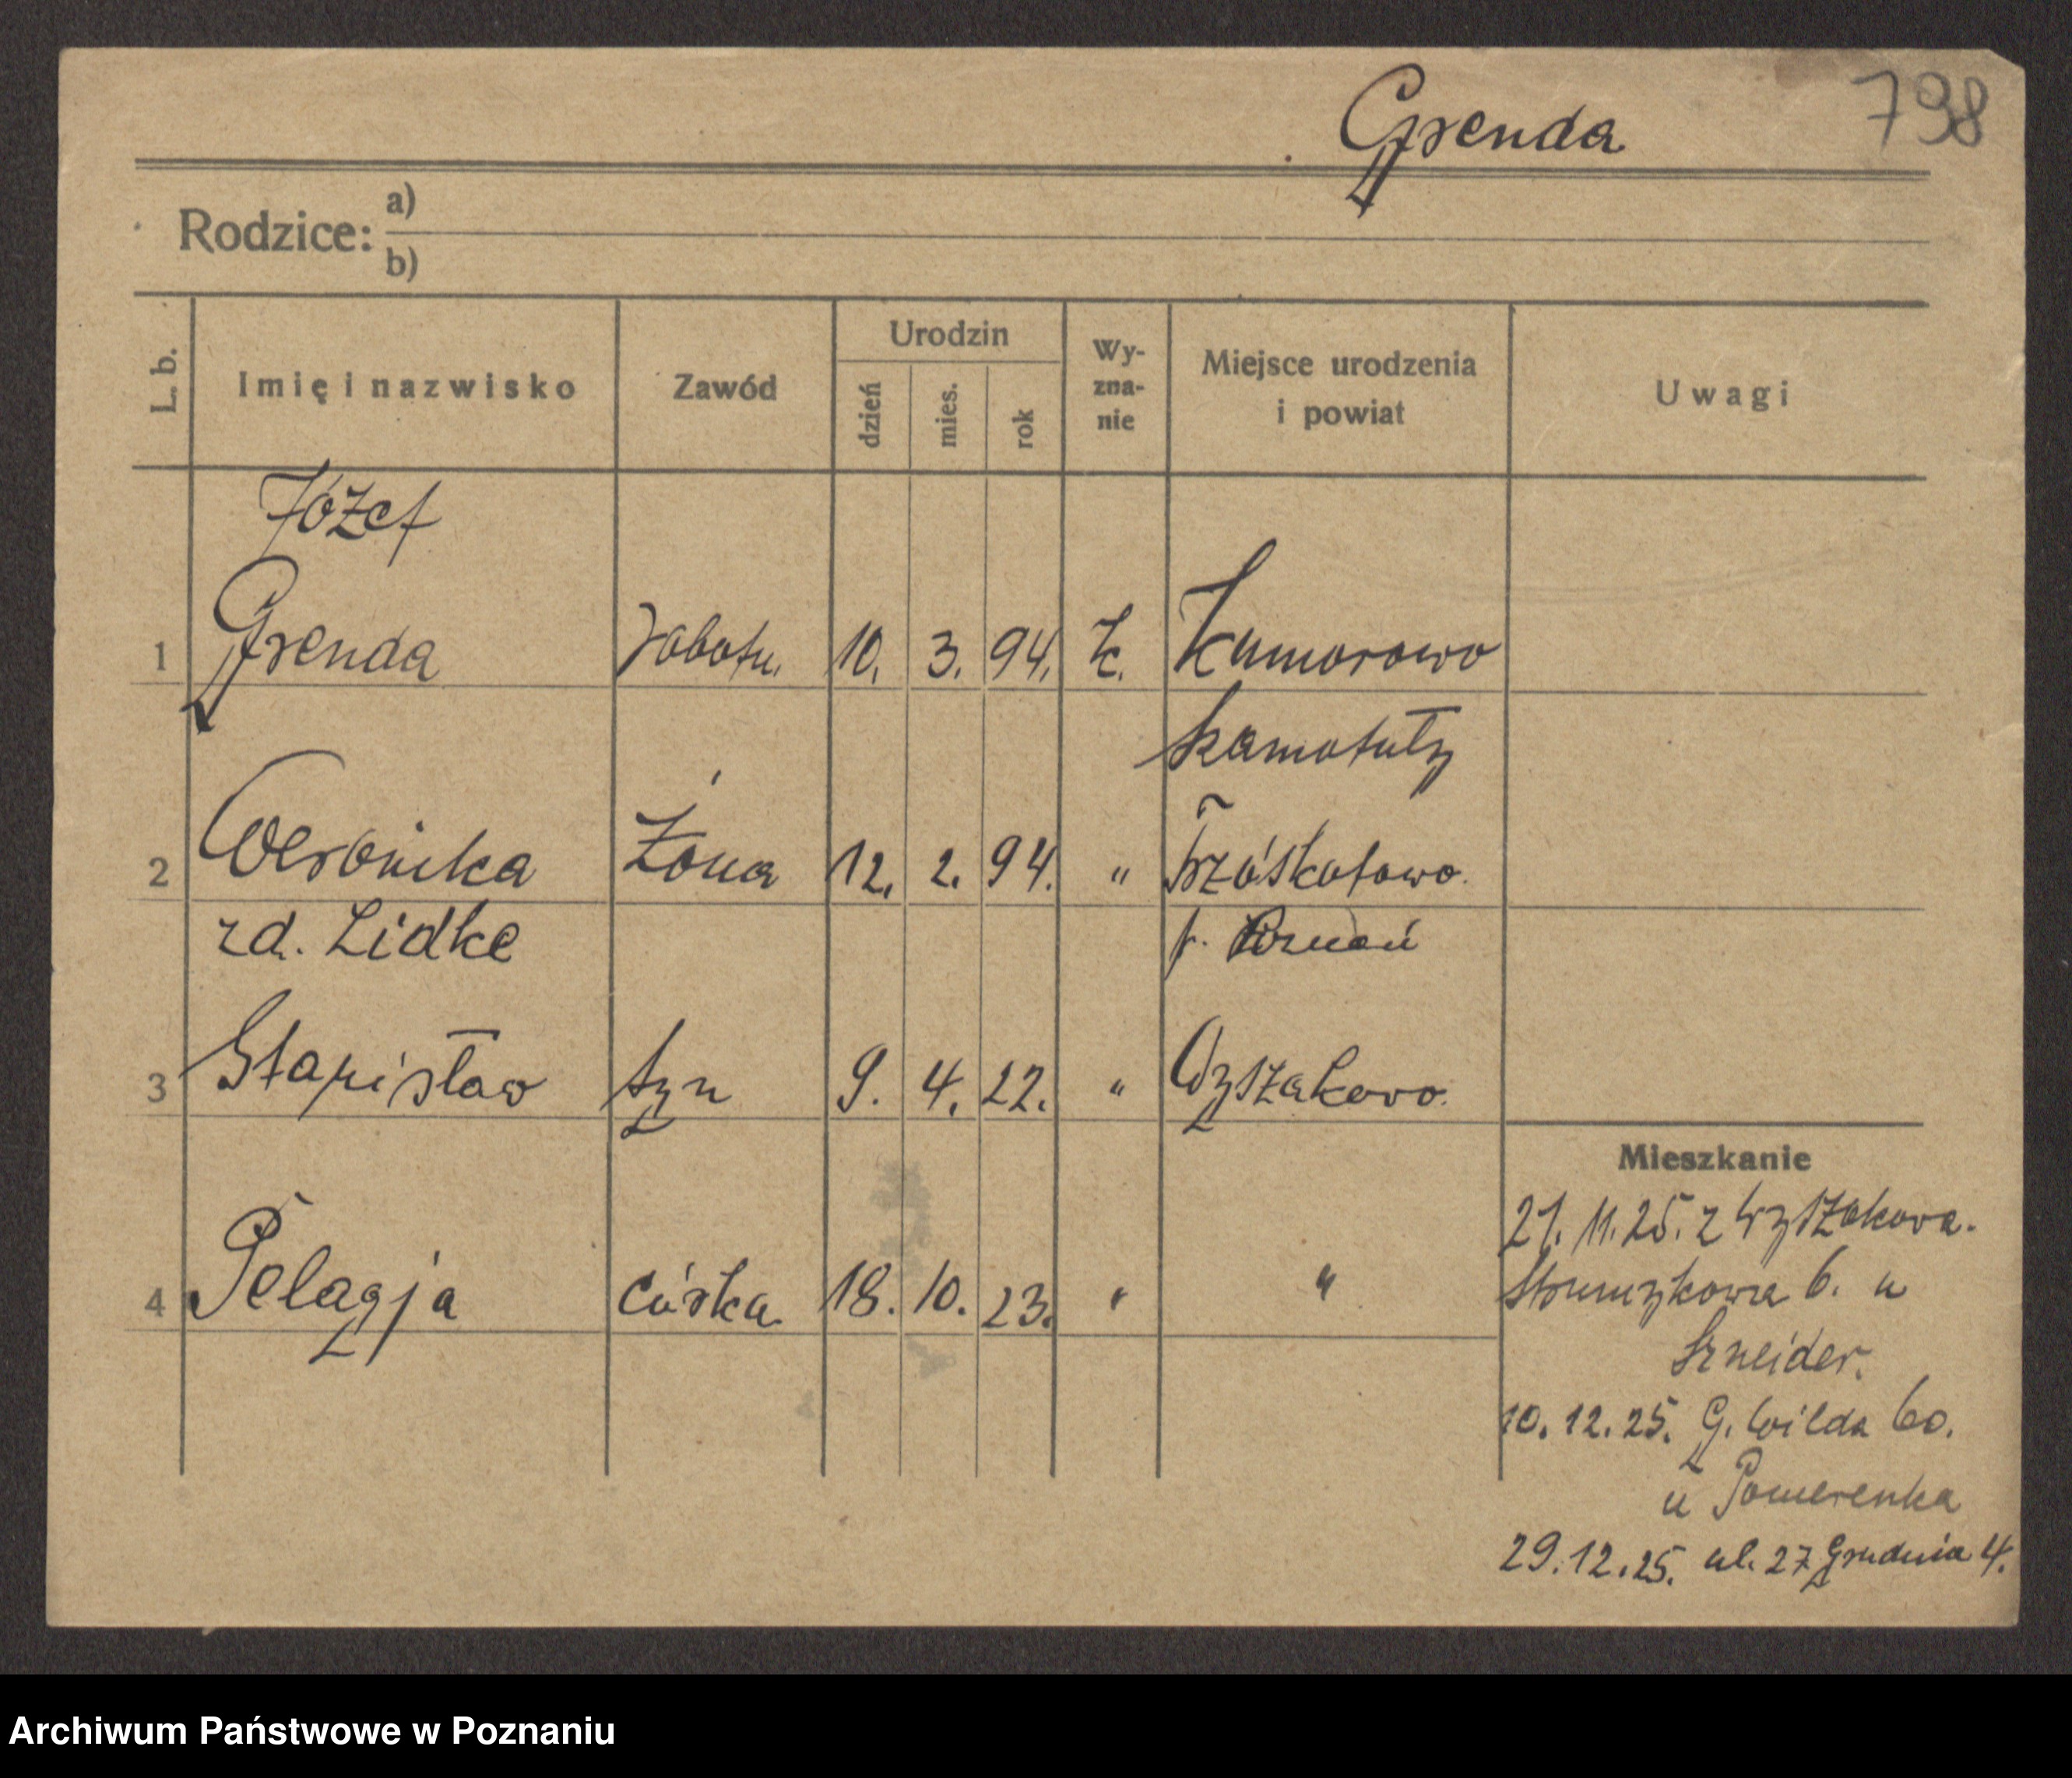 Grenda
798
Rodzice: a)
b)
L. b. Imię i nazwisko Zawód Urodzin dzień mies. rok Wy-zna-nie Miejsce urodzenia i powiat Uwagi
Józef
1 Grenda robotn. 10. 3. 94. k. Kumorowo
Szamotuły
2 Weronika Żona 12. 2. 94. "
zd. Lidke p. Poznań
3 Stanisław syn 9. 4. 22. " Wyszakowo.
4 Pelagja córka 18. 10. 23. " "
Mieszkanie
21. 11. 25. z Wyszakowa.
Strumykowa 6. u
Szneider.
10. 12. 25. G. Wilda 60.
u Pomerenka
29. 12. 25. ul. 27 Grudnia 4.
Archiwum Państwowe w Poznaniu